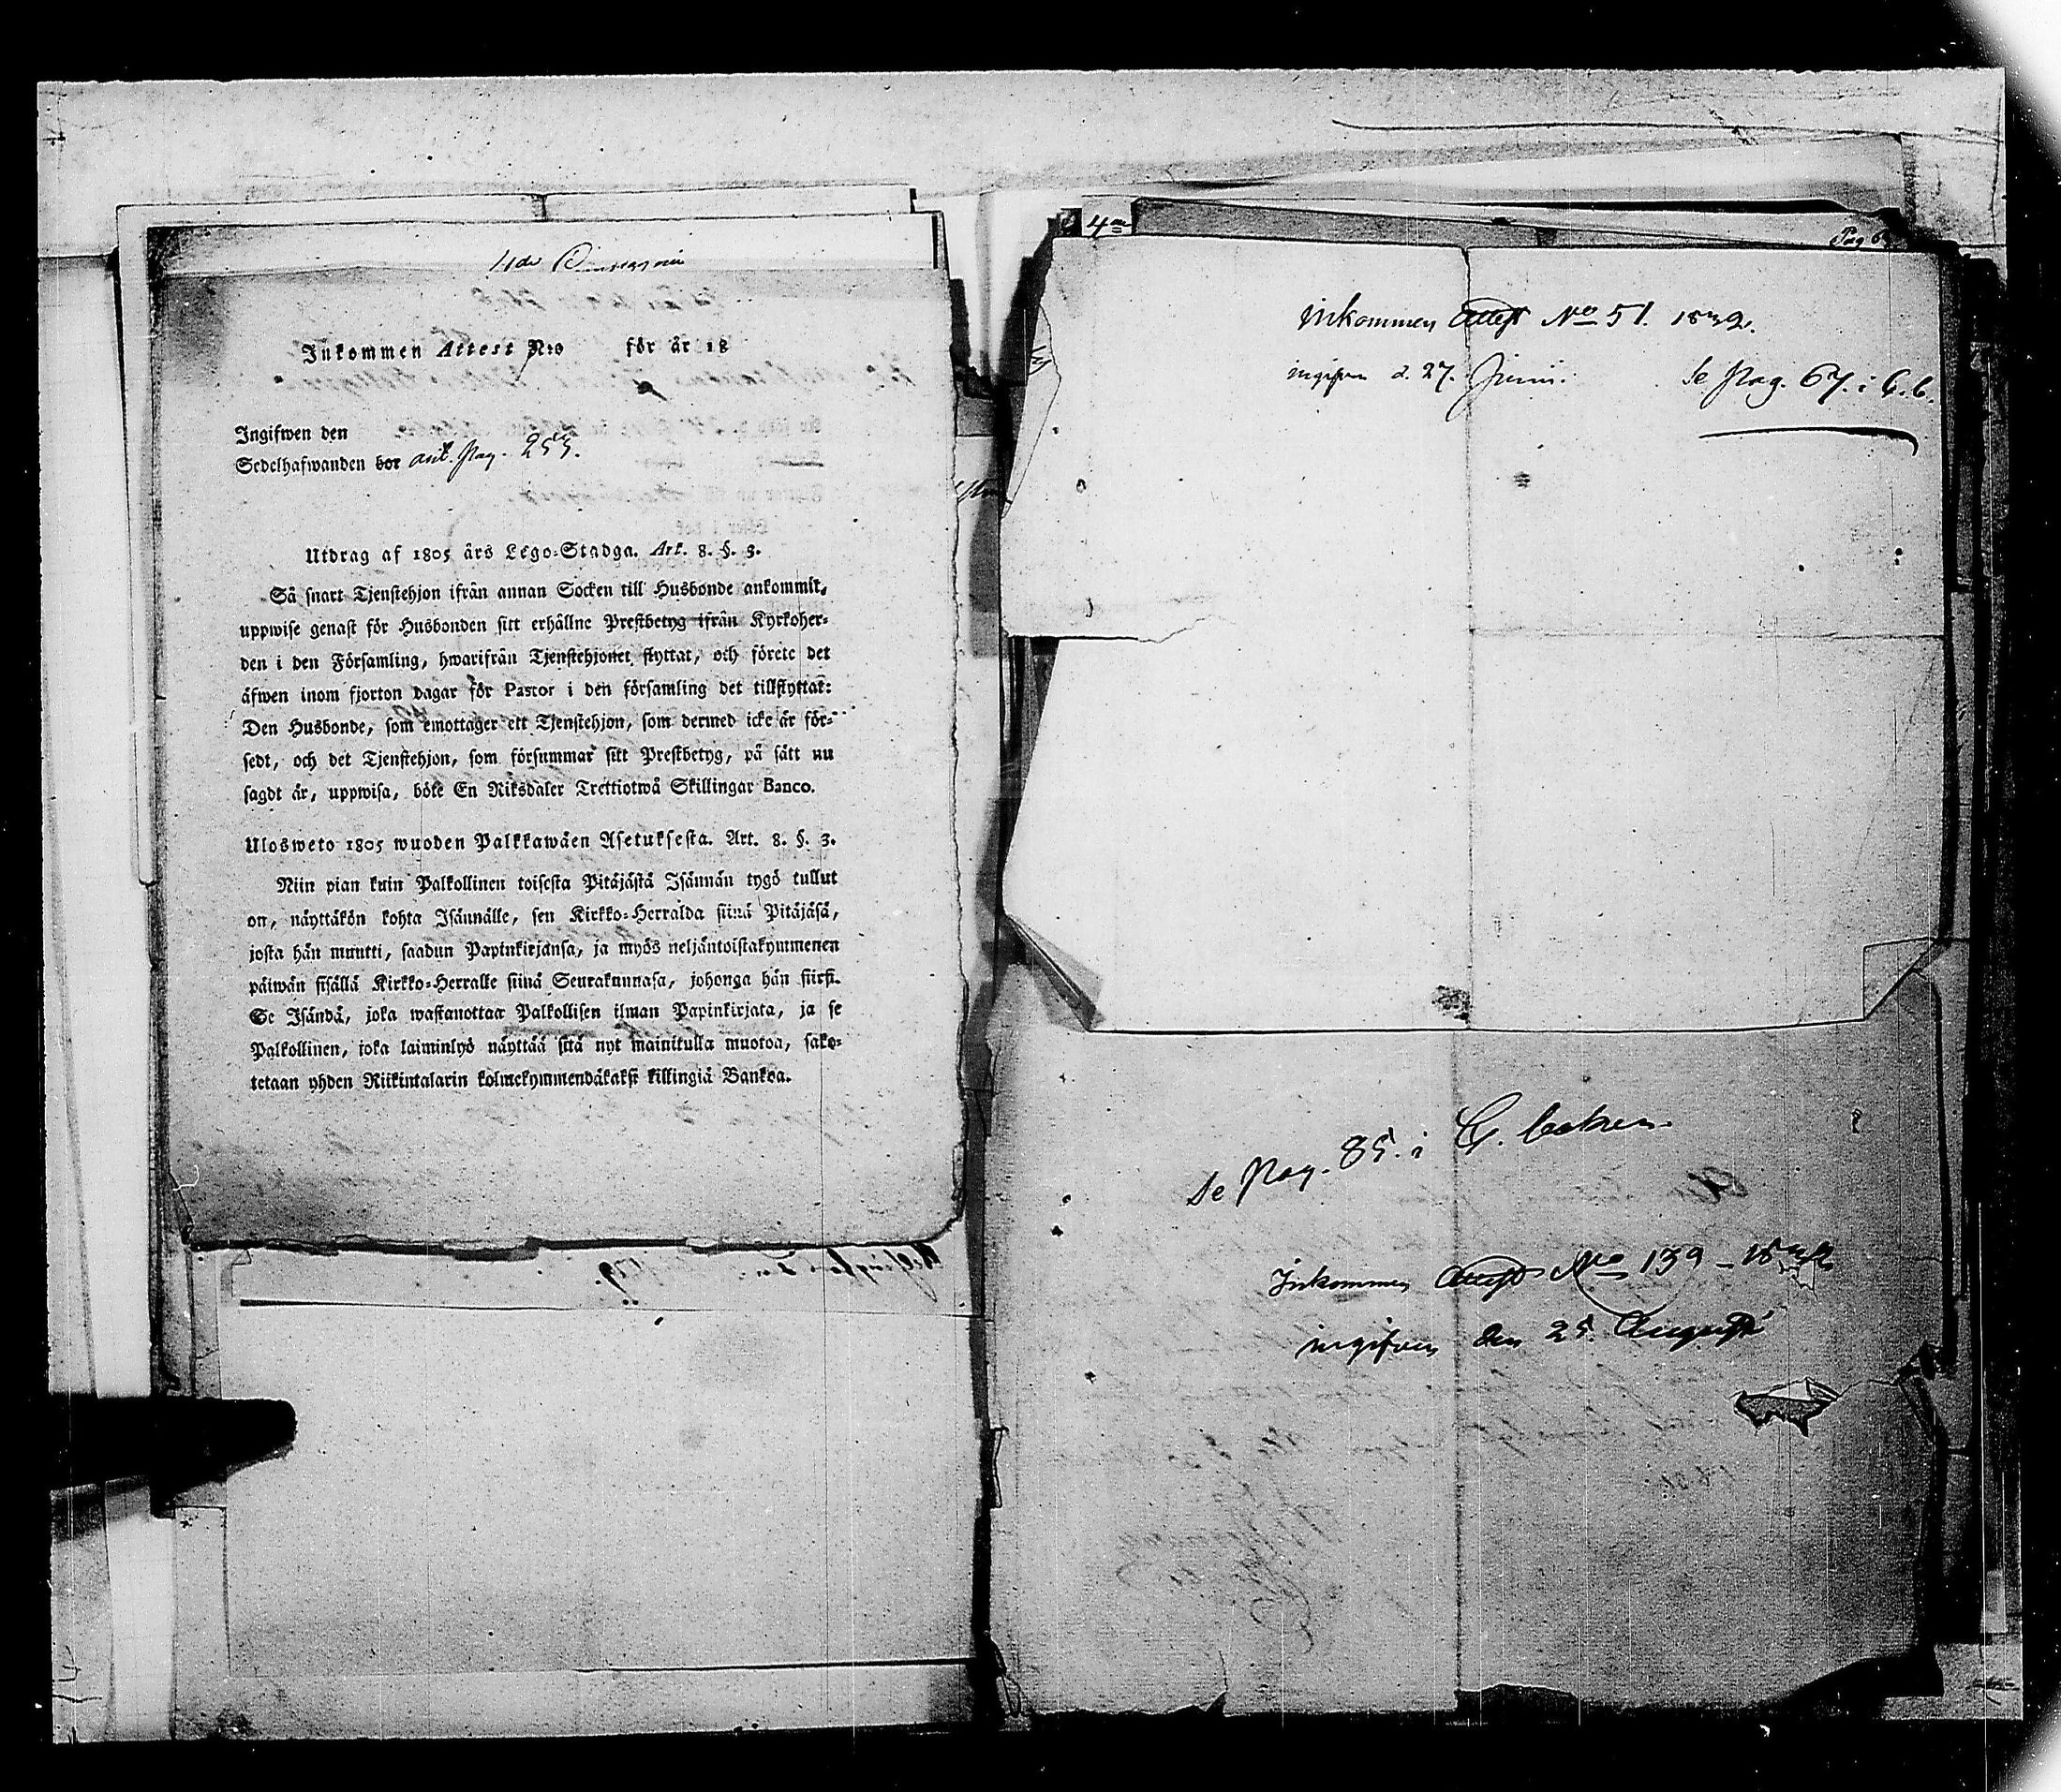 Inkommen Attest N:o för år 18
Ingifwen den
Sedelhafwanden bor ant. pag. 253.
Utdrag af 1805 års Lego-Stadga. Art. 8. §. 3.
Så snart Tjenstehjon ifrån annan Socken till Husbonde ankommit,
uppwise genast för Husbonden sitt erhållne Prestbetyg ifrån Kyrkoher-
den i den Församling, hwarifrån Tjenstehjonet flyttat, och förete det
äfwen inom fjorton dagar för Pastor i den församling det tillflyttat:
Den Husbonde, som emottager ett Tjenstehjon, som dermed icke är för-
sedt, och det Tjenstehjon, som försummar sitt Prestbetyg, på sätt nu
sagdt är, uppwisa, böte En Riksdaler Trettiotwå Skillingar Banco.
Ulosweto 1805 wuoden Palkkawäen Asetuksesta. Art. 8. §. 3.
Niin pian kuin Palkollinen toisesta Pitäjästä Isännän tygö tullut
on, näyttäkön kohta Isännälle, sen Kirkko-Herralda siinä Pitäjäsä,
josta hän muutti, saadun Papinkirjansa, ja myös neljäntoistakymmenen
päiwän sisällä Kirkko-Herralle siinä Seurakunnasa, johonga hän siirsi.
Se Isändä, joka wastanottaa Palkollisen ilman Papinkirjata, ja se
Palkollinen, joka laiminlyö näyttää sitä nyt mainitulla muotoa, sako-
tetaan yhden Riikintalarin kolmekymmendäkaksi killingiä Bankoa.
Pag 6
Inkommen Attest No 51. 1832.
ingifven d. 27. Junii. Se pag. 67. i C. b.
Se Pag. 85. i C. boken.
Inkommen Attest No 139 - 1832
ingifven den 25 Augusti